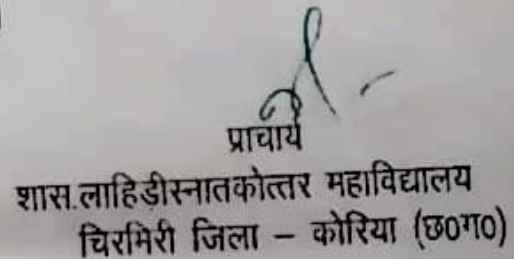 प्राचार्य
शास.लाहिड़ीस्नातकोत्तर महाविद्यालय
चिरमिरी जिला – कोरिया (छ०ग०)